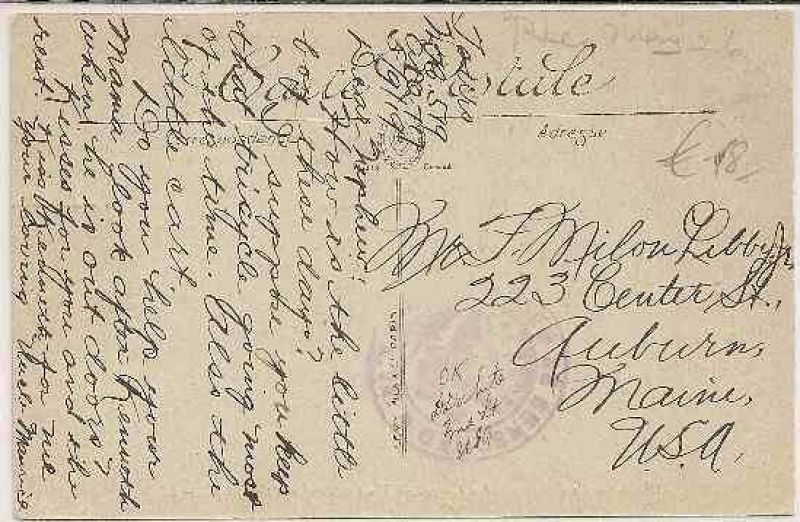 Carte Postale
Correspondance
Adresse
Tours
Feb. 5/19
Dear Nephew:
How is the little
boy these days?
I suppose you keep
that tricycle going most
of the time. Also the
little cart.
Do you help your
Mama look after Kenneth
when he is out doors?
Kisses for you and the
rest. Kiss Meduste for me
Your loving Uncle
€ 18,-
Mr. F. Milon Libby Jr.
223 Center St.,
Auburn,
Maine,
U.S.A.
OK